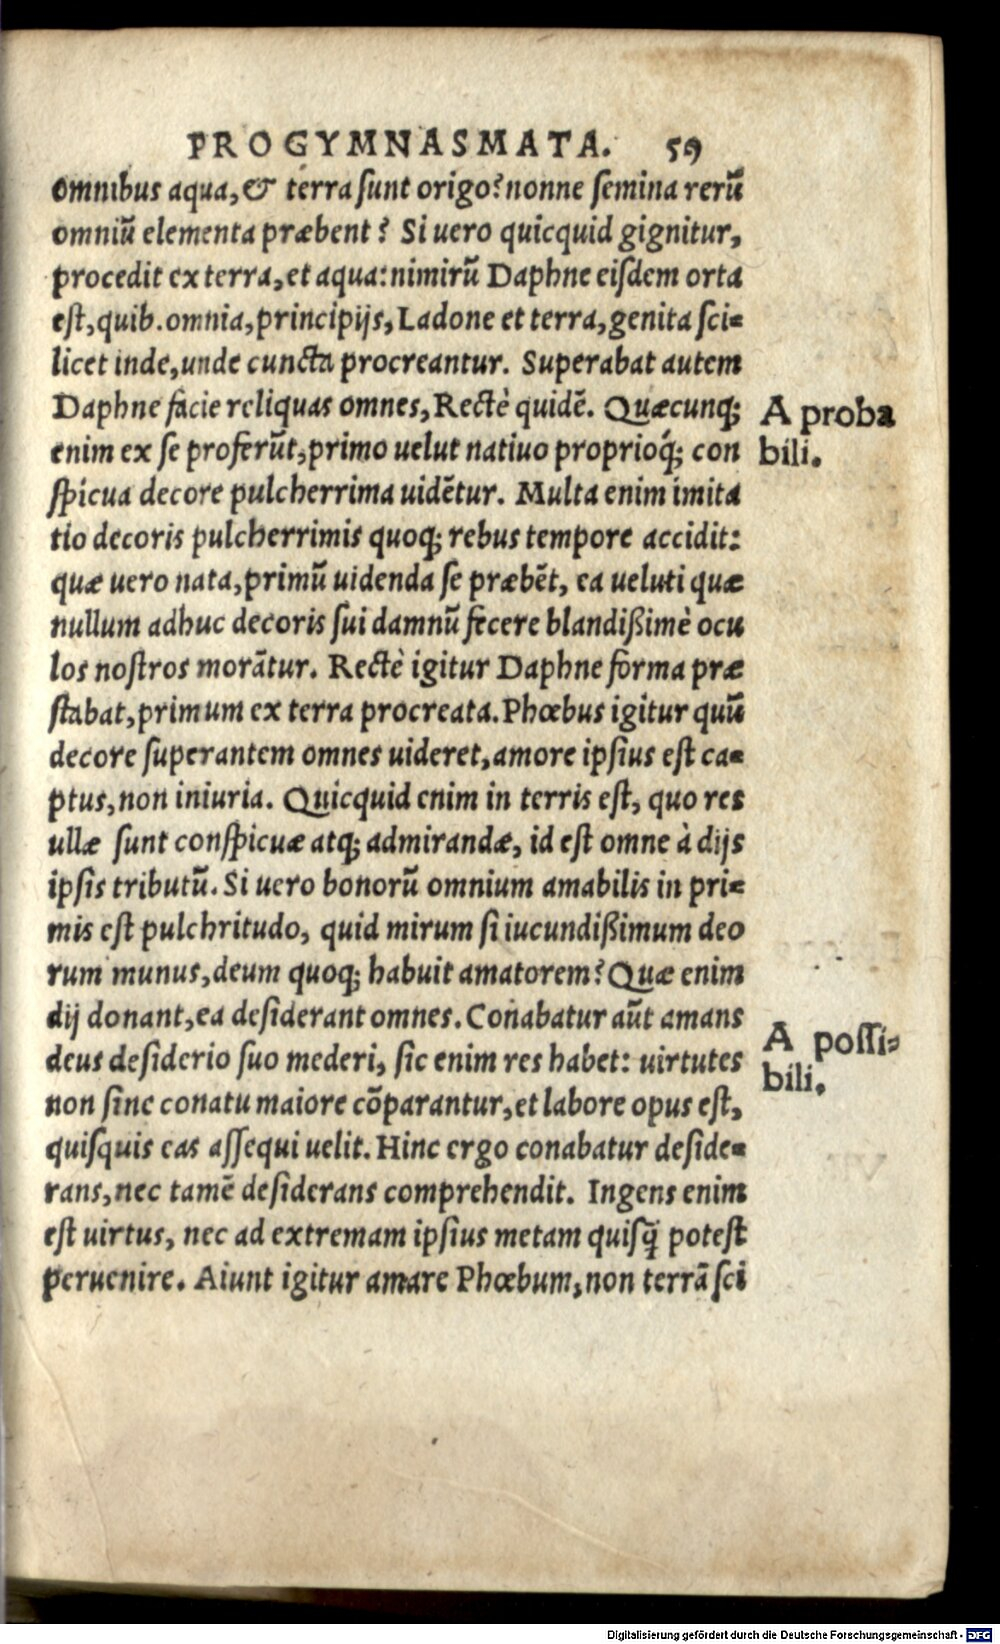 PROGYMNASMATA. 59
omnibus aqua, & terra sunt origo? nonne semina rerū
omniū elementa præbent? Si uero quicquid gignitur,
procedit ex terra, et aqua: nimirū Daphne eiſdem orta
eſt, quib. omnia, principijs, Ladone et terra, genita ſci-
licet inde, unde cuncta procreantur. Superabat autem
Daphne facie reliquas omnes, Rectè quidē. Quæcunq;
enim ex ſe proferūt, primo uelut natiuo proprioq́; con
ſpicua decore pulcherrima uidētur. Multa enim imita
tio decoris pulcherrimis quoq; rebus tempore accidit:
quæ uero nata, primū uidenda ſe præbēt, ea ueluti quæ
nullum adhuc decoris ſui damnū fecere blandißimè ocu
los noſtros morātur. Rectè igitur Daphne forma præ
ſtabat, primum ex terra procreata. Phœbus igitur quū
decore ſuperantem omnes uideret, amore ipſius eſt ca-
ptus, non iniuria. Quicquid enim in terris eſt, quo res
ullæ ſunt conſpicuæ atq; admirandæ, id eſt omne à dijs
ipſis tributū. Si uero bonorū omnium amabilis in pri-
mis eſt pulchritudo, quid mirum ſi iucundißimum deo
rum munus, deum quoq; habuit amatorem? Quæ enim
dij donant, ea deſiderant omnes. Conabatur aūt amans
deus deſiderio ſuo mederi, ſic enim res habet: uirtutes
non ſine conatu maiore cōparantur, et labore opus eſt,
quiſquis eas aſſequi uelit. Hinc ergo conabatur deſide-
rans, nec tamē deſiderans comprehendit. Ingens enim
eſt uirtus, nec ad extremam ipſius metam quiſq̄ poteſt
peruenire. Aiunt igitur amare Phœbum, non terrā ſci
A proba
bili.
A poſſi-
bili.
Digitalisierung gefördert durch die Deutsche Forschungsgemeinschaft - DFG